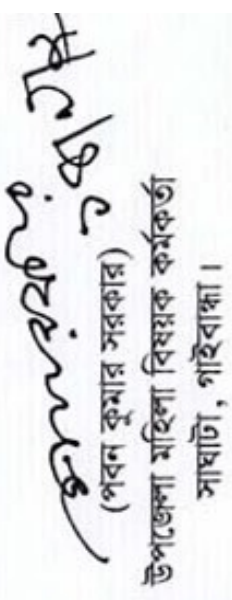 (পবন কুমার সরকার)
উপজেলা মহিলা বিষয়ক কর্মকর্তা
সাঘাটা, গাইবান্ধা।